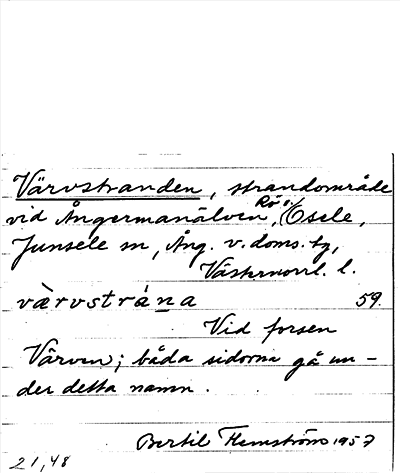 Värvstranden, strandområde
vid Ångermanälven, Rö i Esele,
Junsele sn, Ång. v. doms. tg,
Västernorrl. l.
vàrvstrána 59.
Vid forsen
Värven; båda sidorna gå un-
der detta namn.
Bertil Flemström 1957
21,48